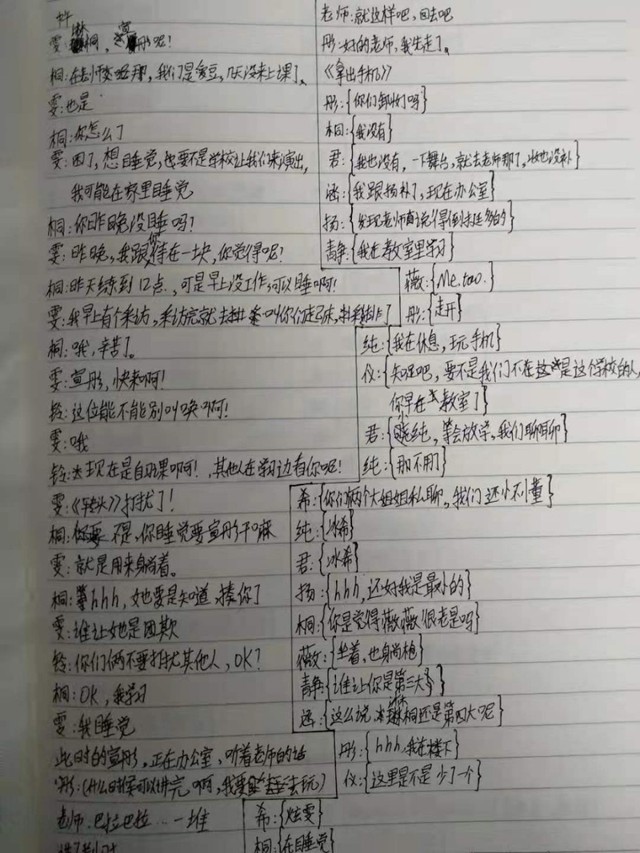 雯：桐，宣彤呢！
桐：在老师那，我们是爱豆，几天没来上课了、
雯：也是
桐：你怎么了
雯：困了，想睡觉，要不是学校让我们来演出，
我可能在家里睡觉
桐：你昨晚没睡吗？
雯：昨晚，我跟你待在一块，你觉得呢？
桐：昨天练到12点、可是早上没工作，可以睡啊！
雯：我早上有个采访，采访完就去叫你们起床，
桐：哦，辛苦了。
雯：宣彤，快来啊！
铃：这位能不能别叫唤啊！
雯：哦
铃：现在是自习课啊！，其他人在学习边有你呢！
雯：打扰了！
桐：不是，你睡觉要宣彤干嘛
雯：就是用来躺着。
桐：hhh，她要是知道，揍你了
雯：谁让她是团欺
铃：你们俩不要打扰其他人，OK？
桐：OK，我学习
雯：我睡觉
此时的宣彤，正在办公室，听着老师的话
彤：(什么时候可以讲完啊，我要去玩)
老师：巴拉巴拉……一堆
老师：就这样吧，回去吧
彤：好的老师，我先走了、
《拿出手机》
彤：{你们卸妆了吗}
桐：{我没有}
君：{我也没有，一下舞台，就去老师那了、妆也没补}
涵：{我跟扬补了，现在办公室}
扬：{发现老师再说得倒挺多的}
青静：{我在教室里学习}
薇：{Me.too.}
彤：{走开}
纯：{我在休息，玩手机}
仪：{知足吧，要不是我们不在这是这个学校的人，
你早在教室了}
君：{晓纯，等会放学，我们聊聊}
纯：{那不用了}
希：{你们俩个大姐姐私聊，我们还小不懂}
纯：{冰希}
君：{冰希}
扬：{hhh，还好我是最小的}
桐：{你是觉得薇薇很老是吗}
薇：{坐着，也躺枪}
青静：{谁让你是第三大}
涵：{这么说，桐还是第四大呢}
彤：{hhh，我在楼下}
仪：{这里是不是少了一个}
希：{炫雯}
桐：{在睡觉}